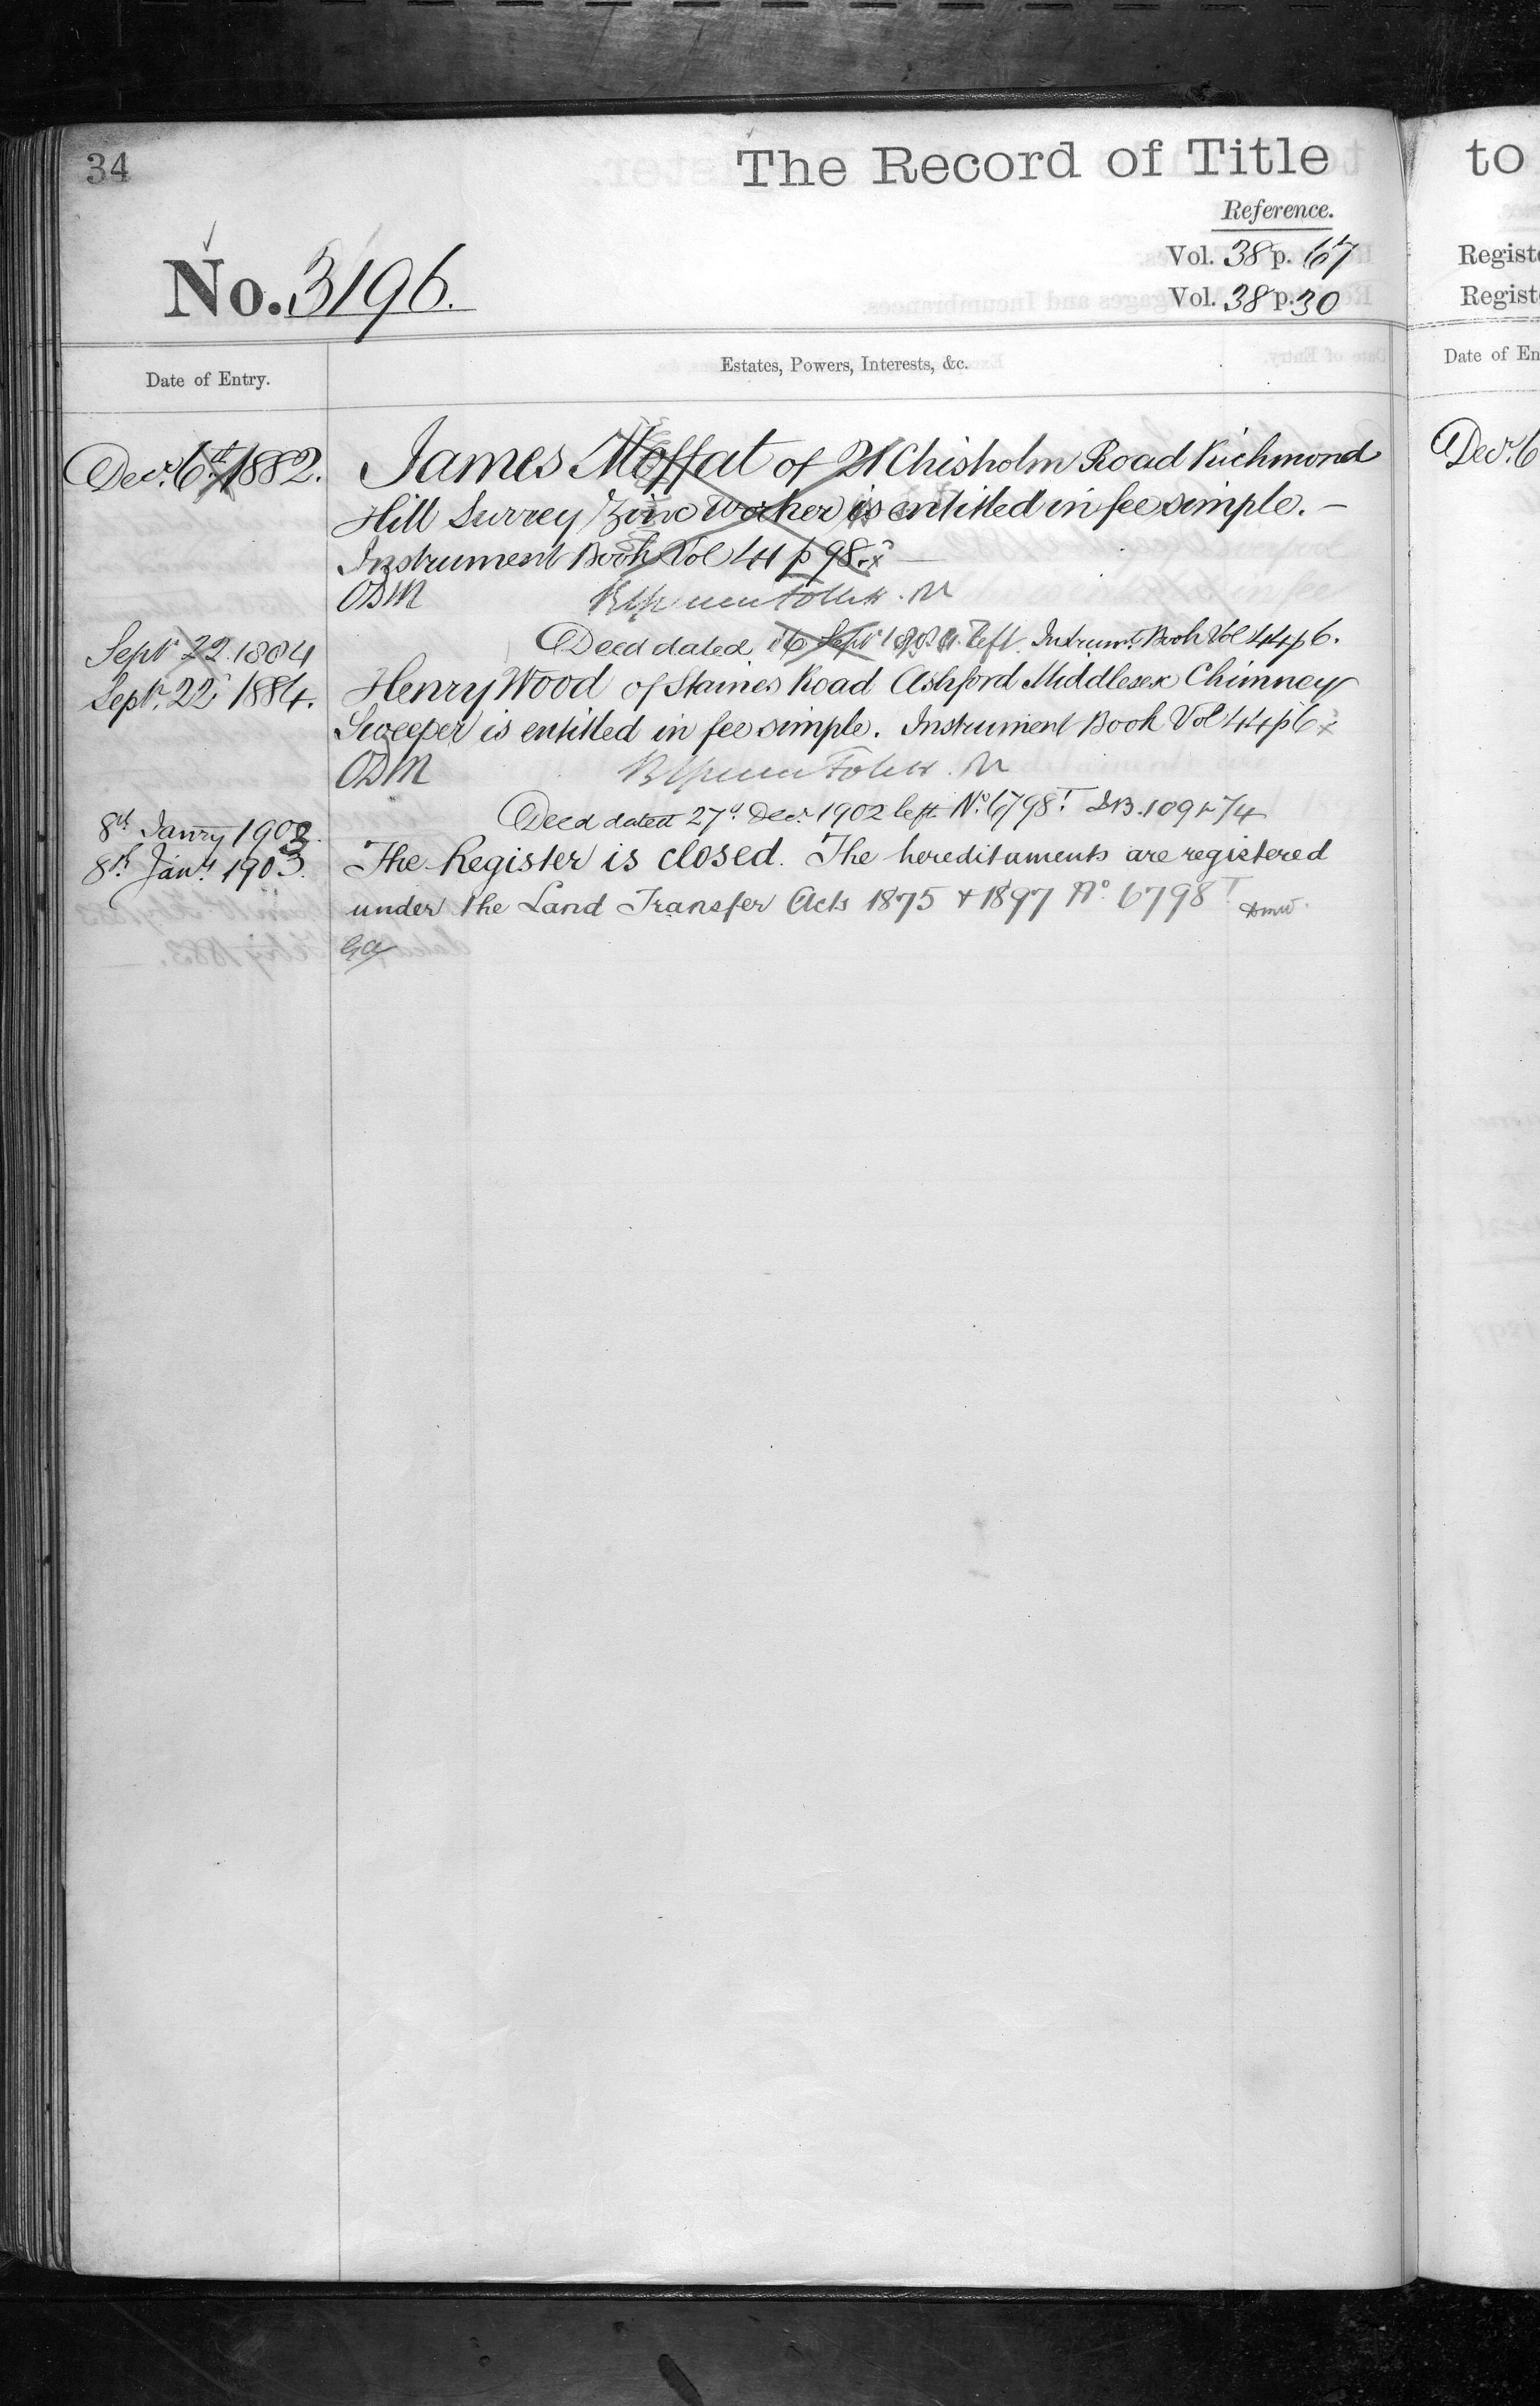 34
The Record of Title
Reference.
No. 3196.
Vol. 38 p. 67
Vol. 38 p. 30
Date of Entry.
Estates, Powers, Interests, &c.
Decr. 6th 1882.
James Moffat of 21 Chisholm Road Richmond
Hill Surrey Zinc Worker is entitled in fee simple. –
Instrument Book Vol 41 p 98. x
ODM
Sept 22. 1884
Deed dated 16 Sept 1884 left. Instrumt. Book Vol 44 p 6.
Sept. 22 1884.
Henry Wood of Staines Road Ashford Middlesex Chimney
Sweeper is entitled in fee simple. Instrument Book Vol 44 p 6 x
ODM
8th Janry 1903.
Deed dated 27th Decr 1902 left No. 6798T
8th Jany 1903.
The Register is closed. The hereditaments are registered
under the Land Transfer Acts 1875 & 1897 No 6798T
to
Regist
Regist
Date of En
Decr. 6